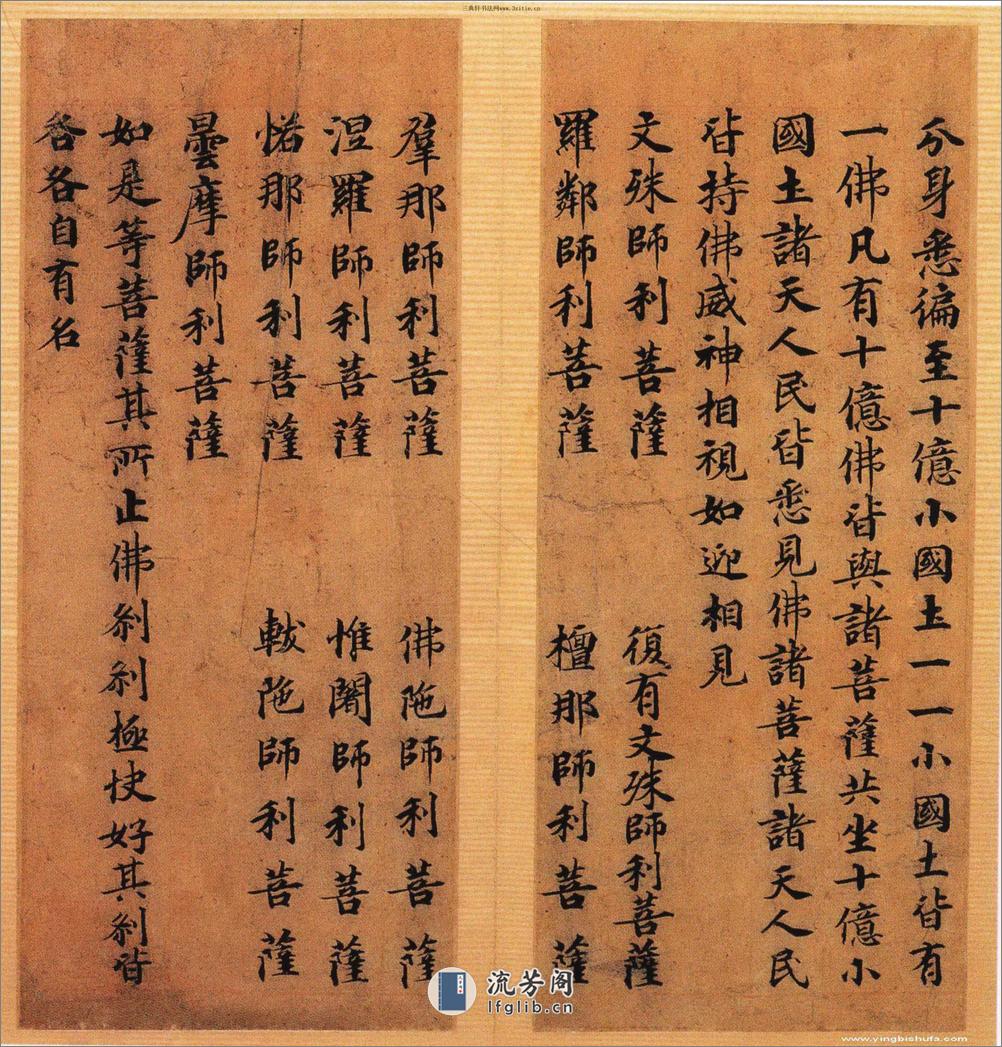 三典轩书法网www.3zitie.cn
分身悉徧至十億小國土一一小國土皆有
一佛凡有十億佛皆與諸菩薩共坐十億小
國土諸天人民皆悉見佛諸菩薩諸天人民
皆持佛威神相視如迎相見
文殊師利菩薩 復有文殊師利菩薩
羅鄰師利菩薩 檀那師利菩薩
羣那師利菩薩 佛陁師利菩薩
涅羅師利菩薩 惟闍師利菩薩
㤩那師利菩薩 軷陁師利菩薩
曇摩師利菩薩
如是等菩薩其所止佛剎剎極快好其剎皆
各各自有名
流芳阁
lfglib.cn
www.yingbishufa.com